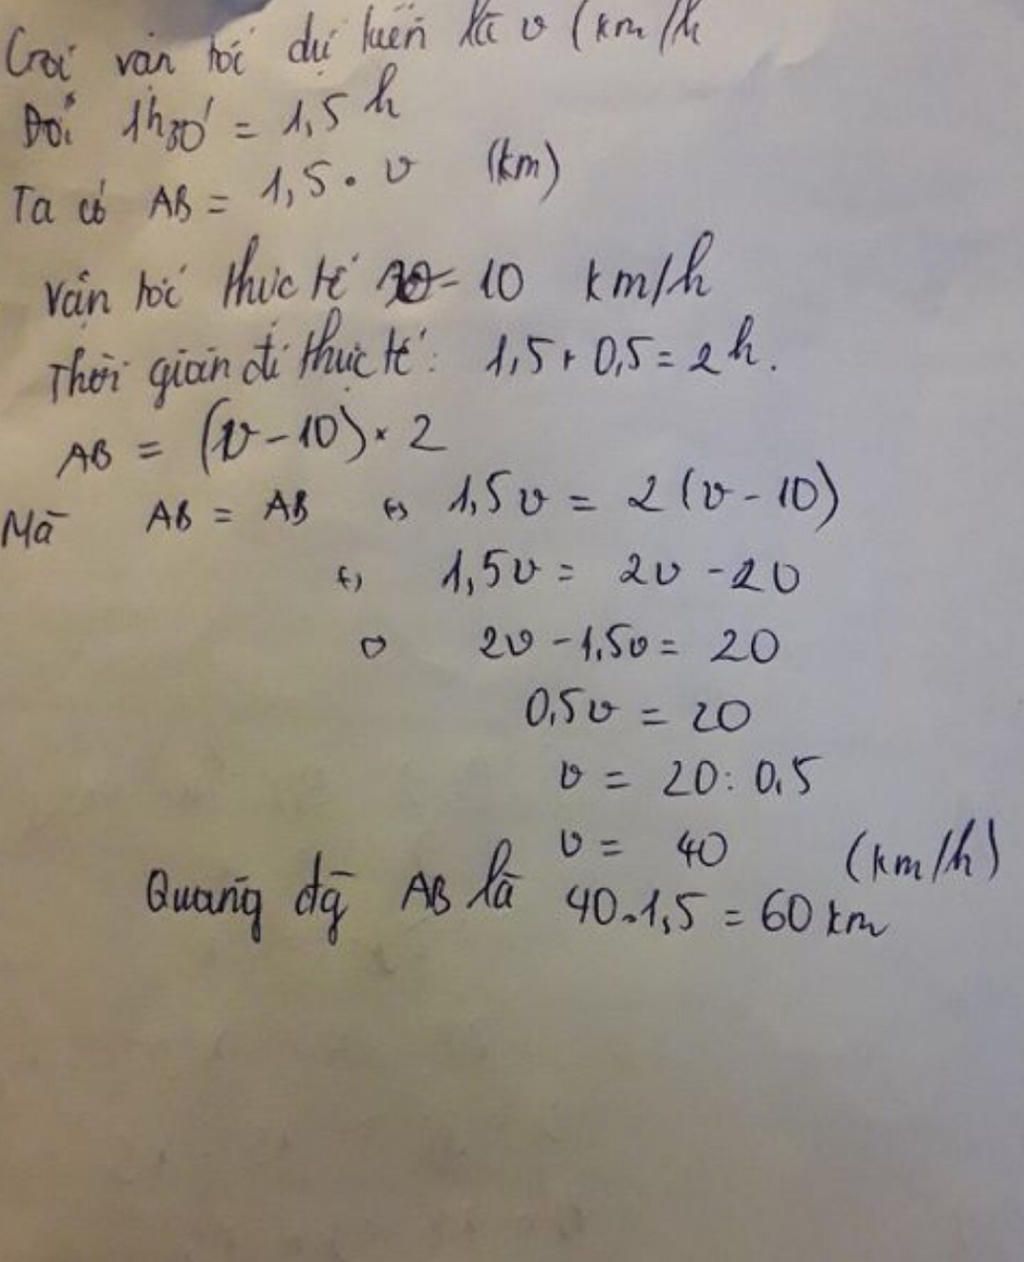 Gọi vận tốc dự kiến là v (km/h
Đổi 1h30' = 1,5 h
Ta có AB = 1,5 . v (km)
Vận tốc thực tế - 10 km/h
Thời gian đi thực tế : 1,5 + 0,5 = 2h.
AB = (v - 10) × 2
Mà AB = AB ⇔ 1,5v = 2 (v - 10)
⇔ 1,5v = 2v - 20
⇔ 2v - 1,5v = 20
0,5v = 20
v = 20 : 0,5
v = 40 (km/h)
Quãng đg AB là 40.1,5 = 60 km